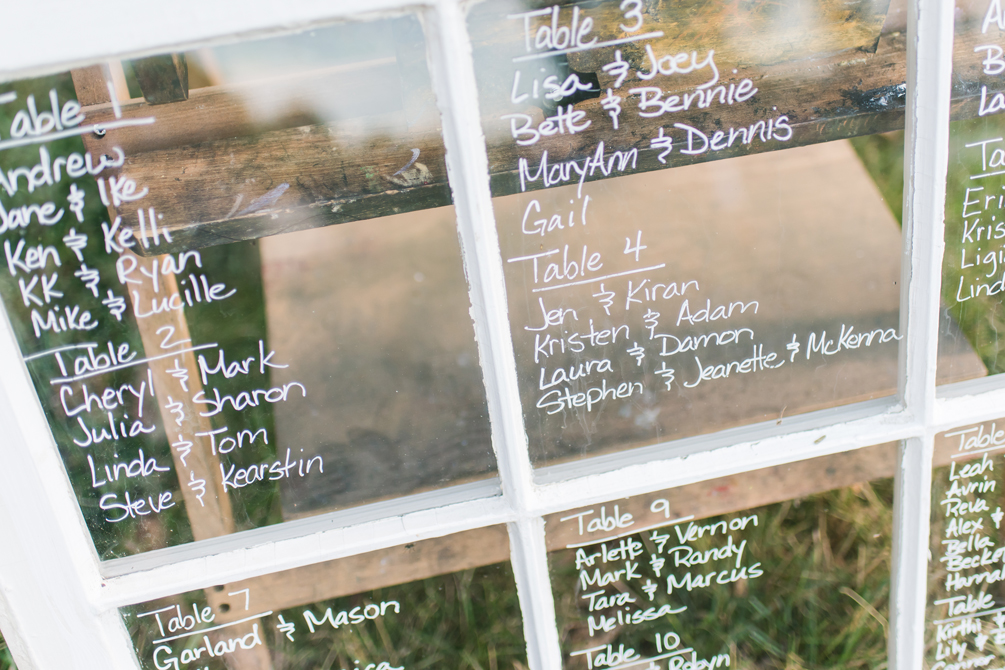 Table 1
Andrew
Jane & Ike
Ken & Kelli
KK & Ryan
Mike & Lucille
Table 2
Cheryl & Mark
Julia & Sharon
Linda & Tom
Steve & Kearstin
Table 3
Lisa & Joey
Bette & Bennie
MaryAnn & Dennis
Gail
Table 4
Jen & Kiran
Kristen & Adam
Laura & Damon
Stephen & Jeanette & McKenna
Table 7
Garland & Mason
Table 9
Arlette & Vernon
Mark & Randy
Tara & Marcus
Melissa
Table 10
& Robyn
Table
Leah
Avrin
Reva
Alex &
Bella
Hannah
Table
Lily &